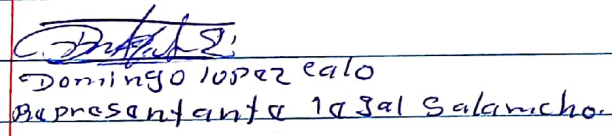 Domingo lopez calo
Representante legal Salamcho.